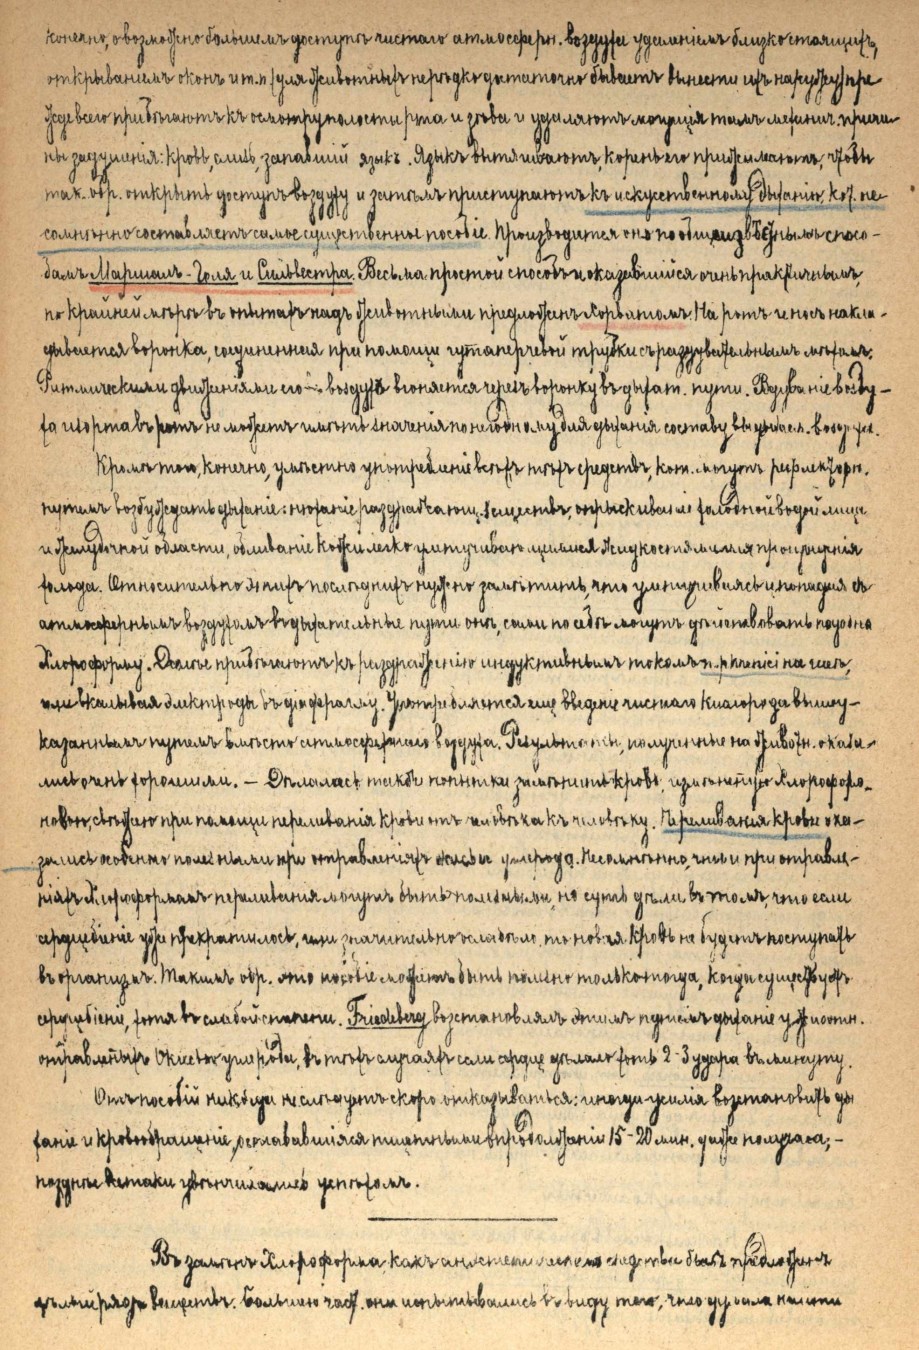 конечно, о возможно большемъ доступѣ чистаго атмосферн. воздуха удаленіемъ близко стоящихъ,
открываніемъ оконъ и т.п. (для животныхъ нерѣдко достаточно бываетъ вынести ихъ наружу) пре
жде всего прибѣгаютъ къ осмотру полости рта и зѣва и удаляютъ могущія тамъ механич. причи-
ны задушенія: кровь, слизь, запавшій языкъ. Языкъ вытягиваютъ, корень его прижимаютъ, чтобы
так. обр. открыть доступъ воздуху и затѣмъ приступаютъ къ искусственному дыханію, кот. не-
сомнѣнно составляетъ самое существенное пособіе. Производится оно по общеизвѣстнымъ спосо-
бамъ Маршалъ-Голя и Сильвестра. Весьма простой способъ и оказавшійся очень практичнымъ,
по крайней мѣрѣ въ опытахъ надъ животными предложенъ Хорватомъ. На ротъ и носъ накла-
дывается воронка, соединенная при помощи гутаперчевой трубки съ раздувательнымъ мѣхомъ.
Ритмическими движеніями его воздухъ вгоняется черезъ воронку въ дыхат. пути. Вдуваніе возду-
ха изо рта въ ротъ не можетъ имѣть значенія по негодному для дыханія составу выдыхаем. воздуха.
Кромѣ того, конечно, умѣстно употребленіе всѣхъ тѣхъ средствъ, кот. могутъ рефлектор.
путемъ возбуждать дыханіе: нюханіе раздражающ. веществъ, опрыскиваніе холодной водой лица
и желудочной области, обливаніе кожи легко улетучивающимися жидкостями для произведенія
холода. Относительно этихъ послѣднихъ нужно замѣтить, что улетучиваясь и попадая съ
атмосфернымъ воздухомъ въ дыхательные пути онѣ, сами по себѣ могутъ дѣйствовать подобно
Хлороформу. Далѣе прибѣгаютъ къ раздраженію индуктивнымъ токомъ n. phrenici на шеѣ,
или вкалывая электроды въ діафрагму. Употребляется еще введеніе чистаго кислорода вышеу-
казаннымъ путемъ вмѣсто атмосфернаго воздуха. Результаты, полученные на животн. оказа-
лись очень хорошими. — Дѣлалась также попытки замѣнить кровь, измѣненную Хлороформ-
новою, свѣжею при помощи переливанія крови отъ человѣка къ человѣку. Переливанія крови ока-
зались особенно полезными при отравленіяхъ окисью углерода. Несомнѣнно, что и при отравле-
ніяхъ Хлороформомъ переливанія могутъ быть полезными, но суть дѣла въ томъ, что если
сердцебіеніе уже прекратилось, или значительно ослабѣло, то новая кровь не будетъ поступать
въ организмъ. Такимъ обр. это пособіе можетъ быть полезно только тогда, когда существуетъ
сердцебіеніе, хотя въ слабой степени. Friedeberg возстановлялъ этимъ путемъ дыханіе у животн.
отравленныхъ окисью углерода, въ тѣхъ случаяхъ если сердце дѣлало хоть 2-3 удара въ минуту.
Отъ пособій никогда не слѣдуетъ скоро отказываться: иногда усилія возстановить ды
ханіе и кровообращеніе, остававшіяся тщетными впродолженіи 15-20 мин. даже получаса, —
позднѣе всетаки увѣнчивались успѣхомъ.
Въ замѣнъ Хлороформа какъ анестетическаго средства былъ предложенъ
цѣлый рядъ веществъ. Большею част. они испытывались въ виду того, что думали найти